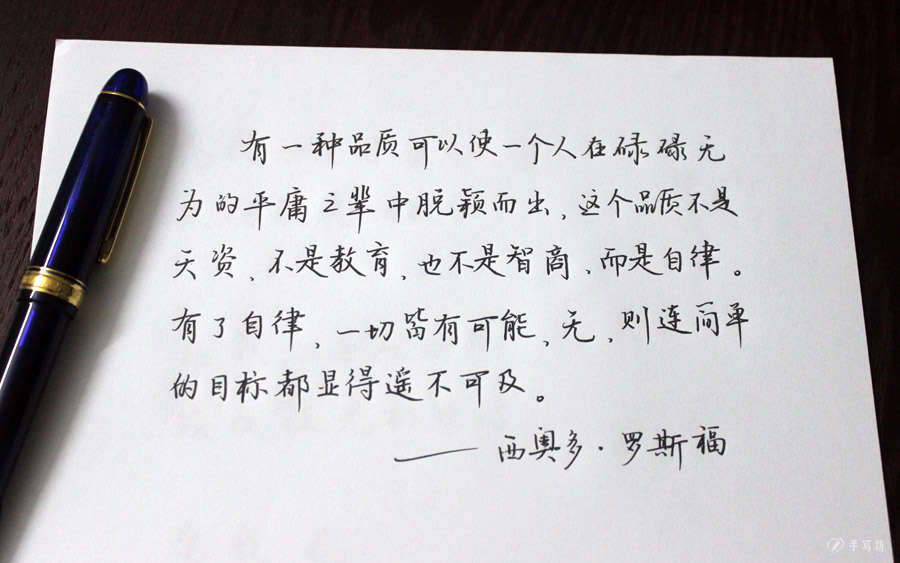 有一种品质可以使一个人在碌碌无
为的平庸之辈中脱颖而出、这个品质不是
天资、不是教育,也不是智商、而是自律。
有了自律,一切皆有可能、无,则连简单
的目标都显得遥不可及。
——西奥多·罗斯福
手写坊